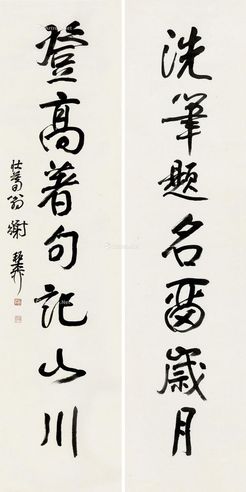 洗筆題名留歲月
登高著句記山川
壯暮翁謝稚柳